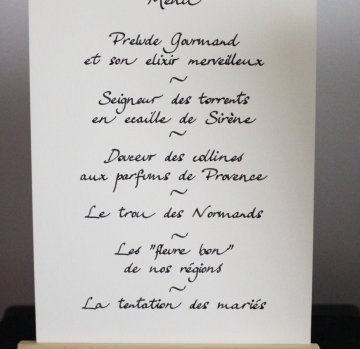 Menu
Prelude Gourmand
et son elixir merveilleux
~
Seigneur des torrents
en ecaille de Sirène
~
Douceur des collines
aux parfums de Provence
~
Le trou des Normands
~
Les "fleure bon"
de nos régions
~
La tentation des mariés